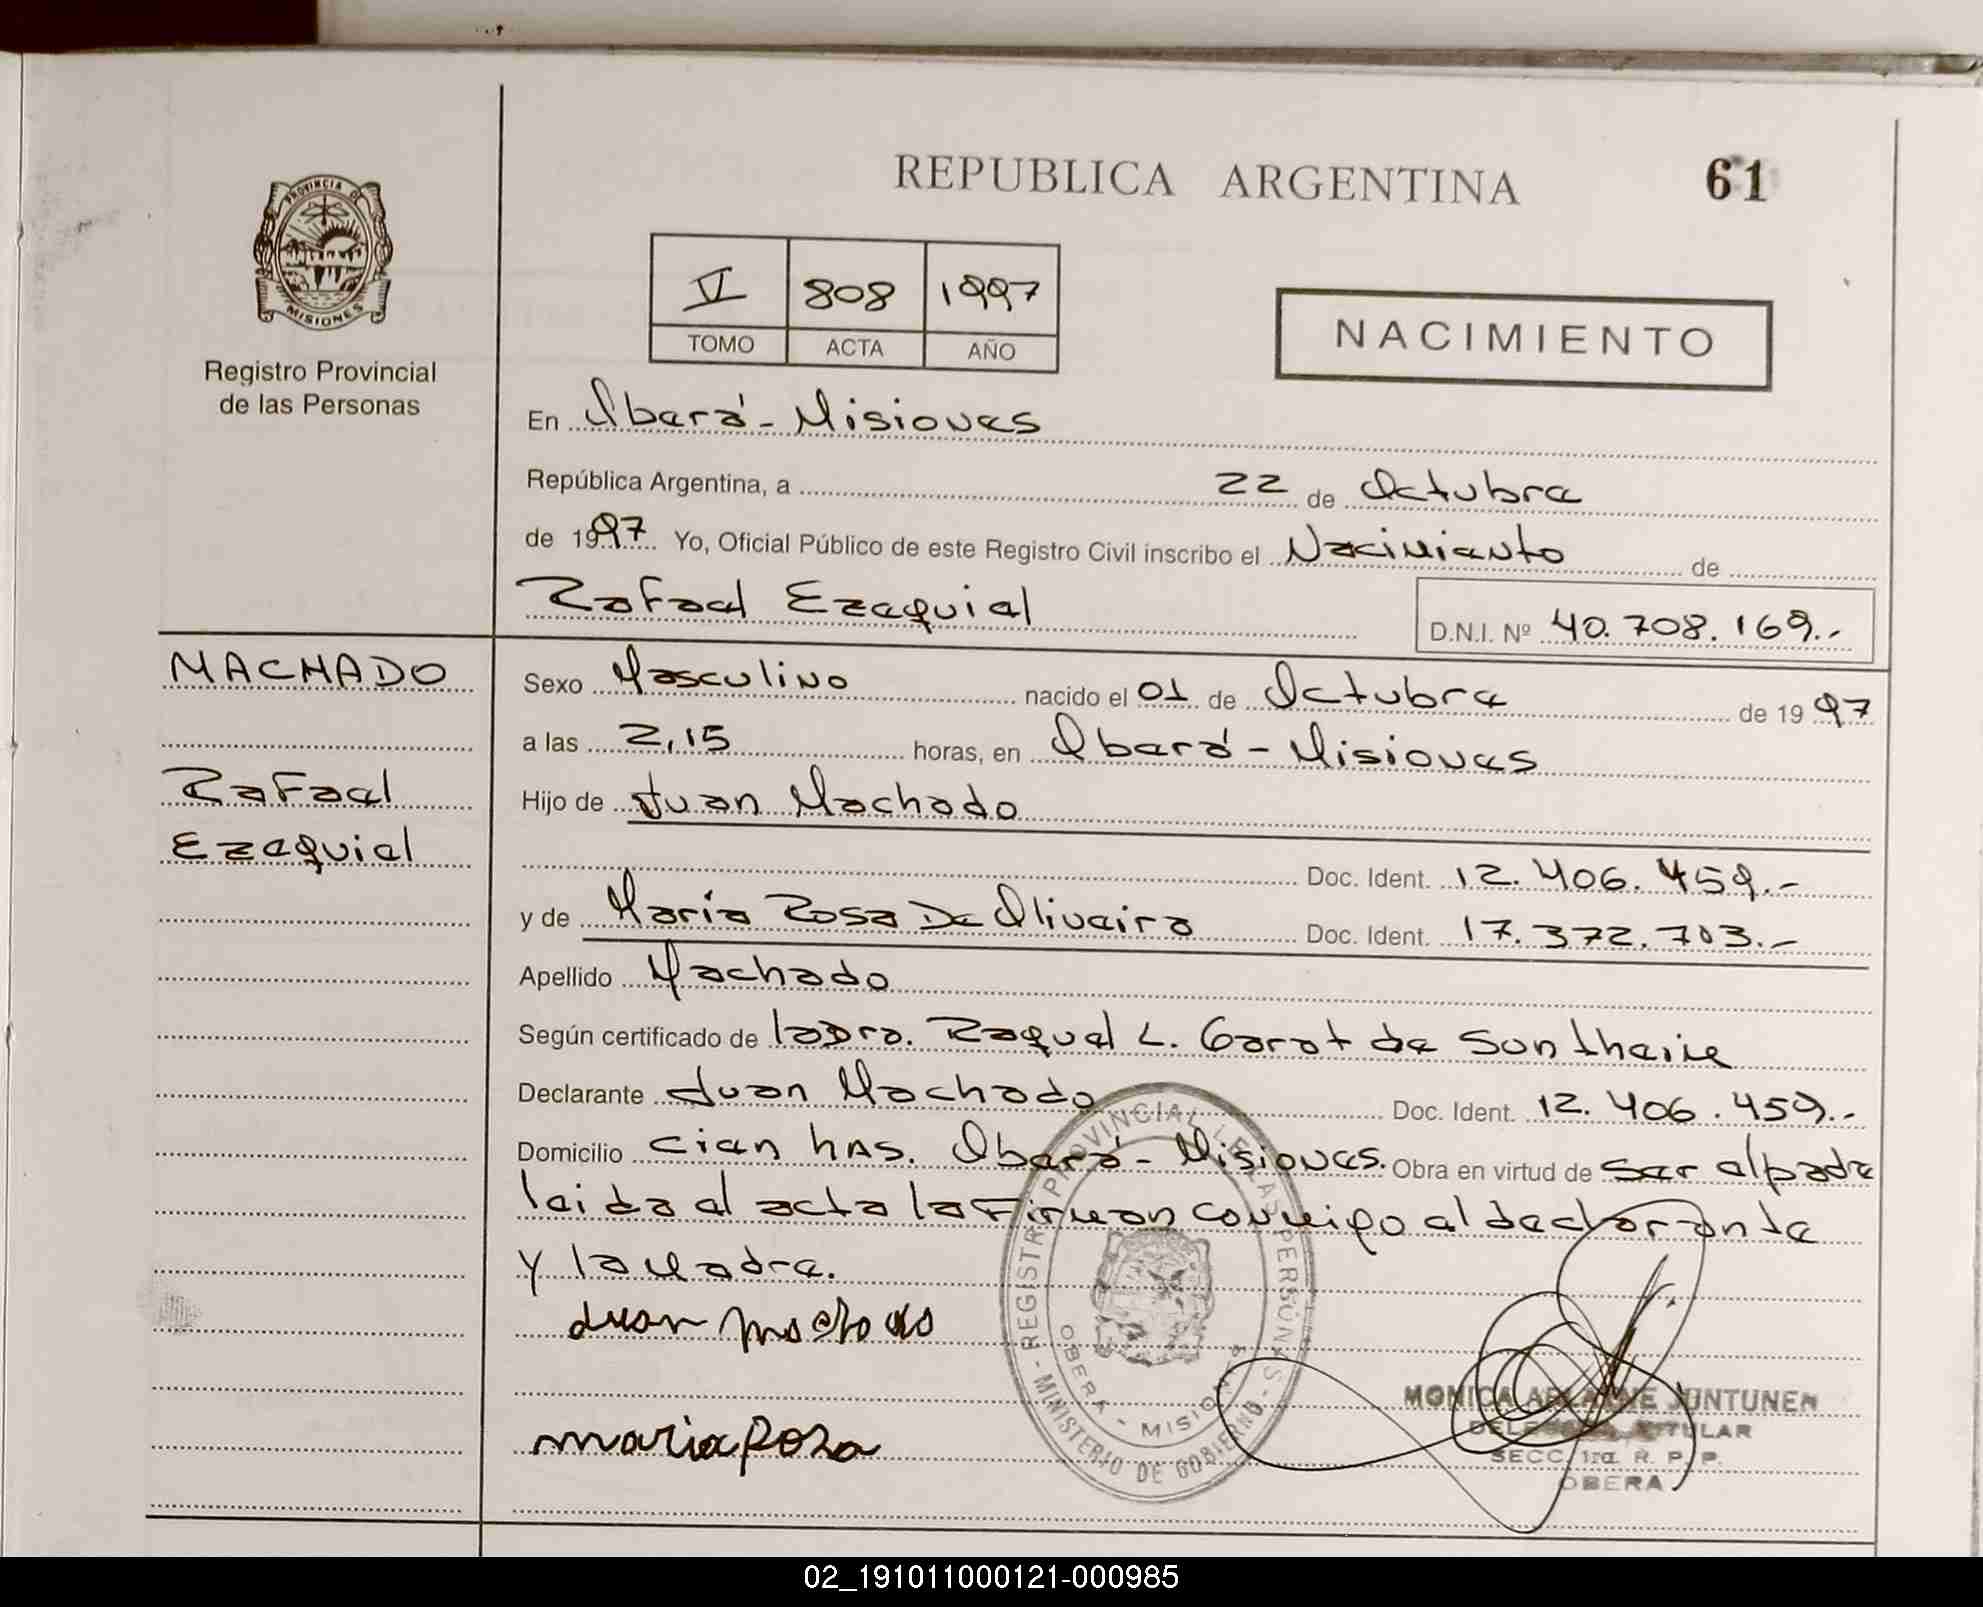 REPUBLICA ARGENTINA 61
PROVINCIA DE MISIONES
Registro Provincial
de las Personas
V 808 1997
TOMO ACTA AÑO
NACIMIENTO
En Oberá - Misiones
República Argentina, a 22 de Octubre
de 1997 Yo, Oficial Público de este Registro Civil inscribo el Nacimiento de
Rafael Ezequiel D.N.I. Nº 40.708.169.-
MACHADO
Rafael
Ezequiel
Sexo Masculino nacido el 01 de Octubre de 1997
a las 2,15 horas, en Oberá - Misiones
Hijo de Juan Machado
Doc. Ident. 12.406.459.-
y de María Rosa De Oliveira Doc. Ident. 17.372.703.-
Apellido Machado
Según certificado de la Dra. Raquel L. Garot de Sontheim
Declarante Juan Machado Doc. Ident. 12.406.459.-
Domicilio Cien has. Oberá - Misiones. Obra en virtud de ser el padre
leida el acta la firman conmigo el declarante
y la madre.
Juan Machado
maria Rosa
REGISTRO PROVINCIAL DE LAS PERSONAS - MINISTERIO DE GOBIERNO -
OBERA - MISIONES
MONICA ARIANNE JUNTUNEN
TITULAR
SECC. 1ra. R. P. P.
OBERA
02_191011000121-000985